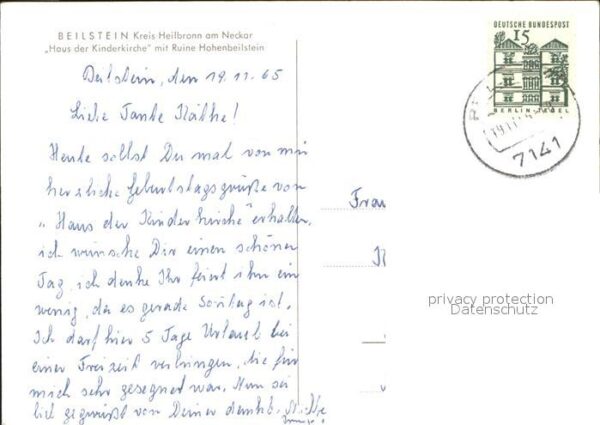 BEILSTEIN Kreis Heilbronn am Neckar
„Haus der Kinderkirche" mit Ruine Hohenbeilstein
Beilstein, den 19.11.65
Liebe Tante Käthe!
Heute sollst Du mal von mir
herzliche Geburtstagsgrüße vom
„Haus der Kinderkirche" erhalten.
ich wünsche Dir einen schönen
Tag, ich denke Ihr feiert ihn ein
wenig, da es gerade Sonntag ist.
Ich darf hier 5 Tage Urlaub bei
einer Freizeit verbringen, die für
mich sehr gesegnet war. Nun sei
lieb gegrüßt von Deiner dankb.
DEUTSCHE BUNDESPOST
15
BERLIN-TEGEL
7141
Frau
privacy protection
Datenschutz